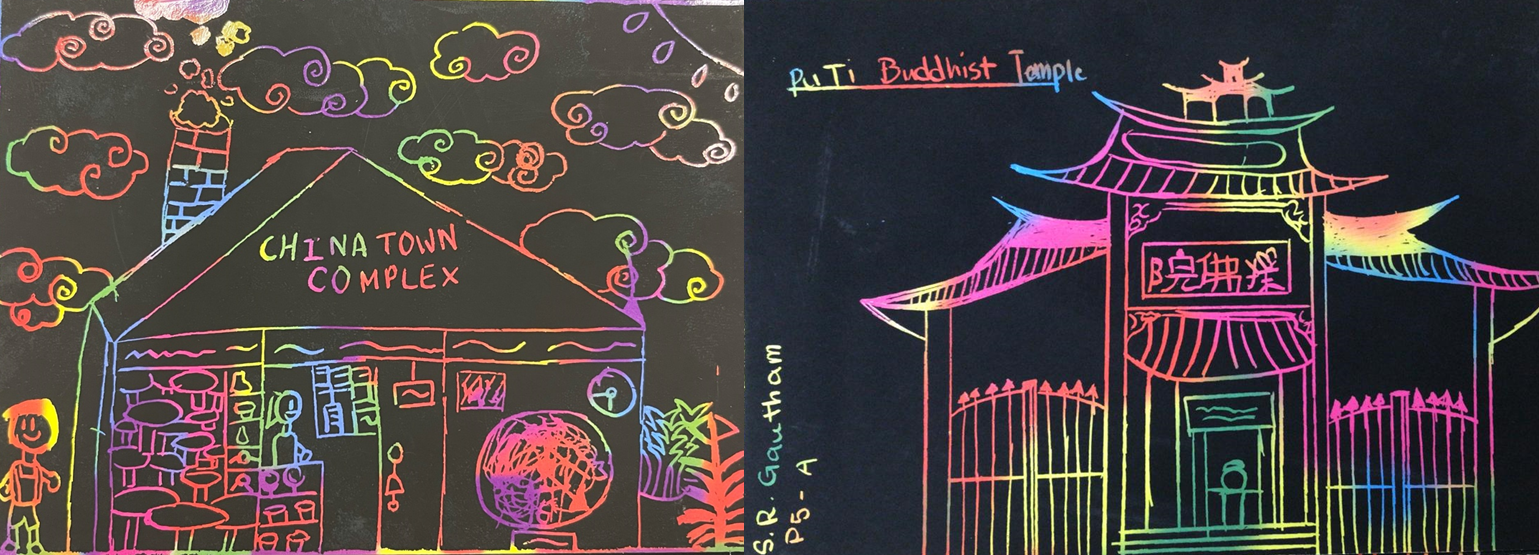 CHINA TOWN
COMPLEX
PuTi Buddhist Temple
院佛
S. R. Gautham
P5- A